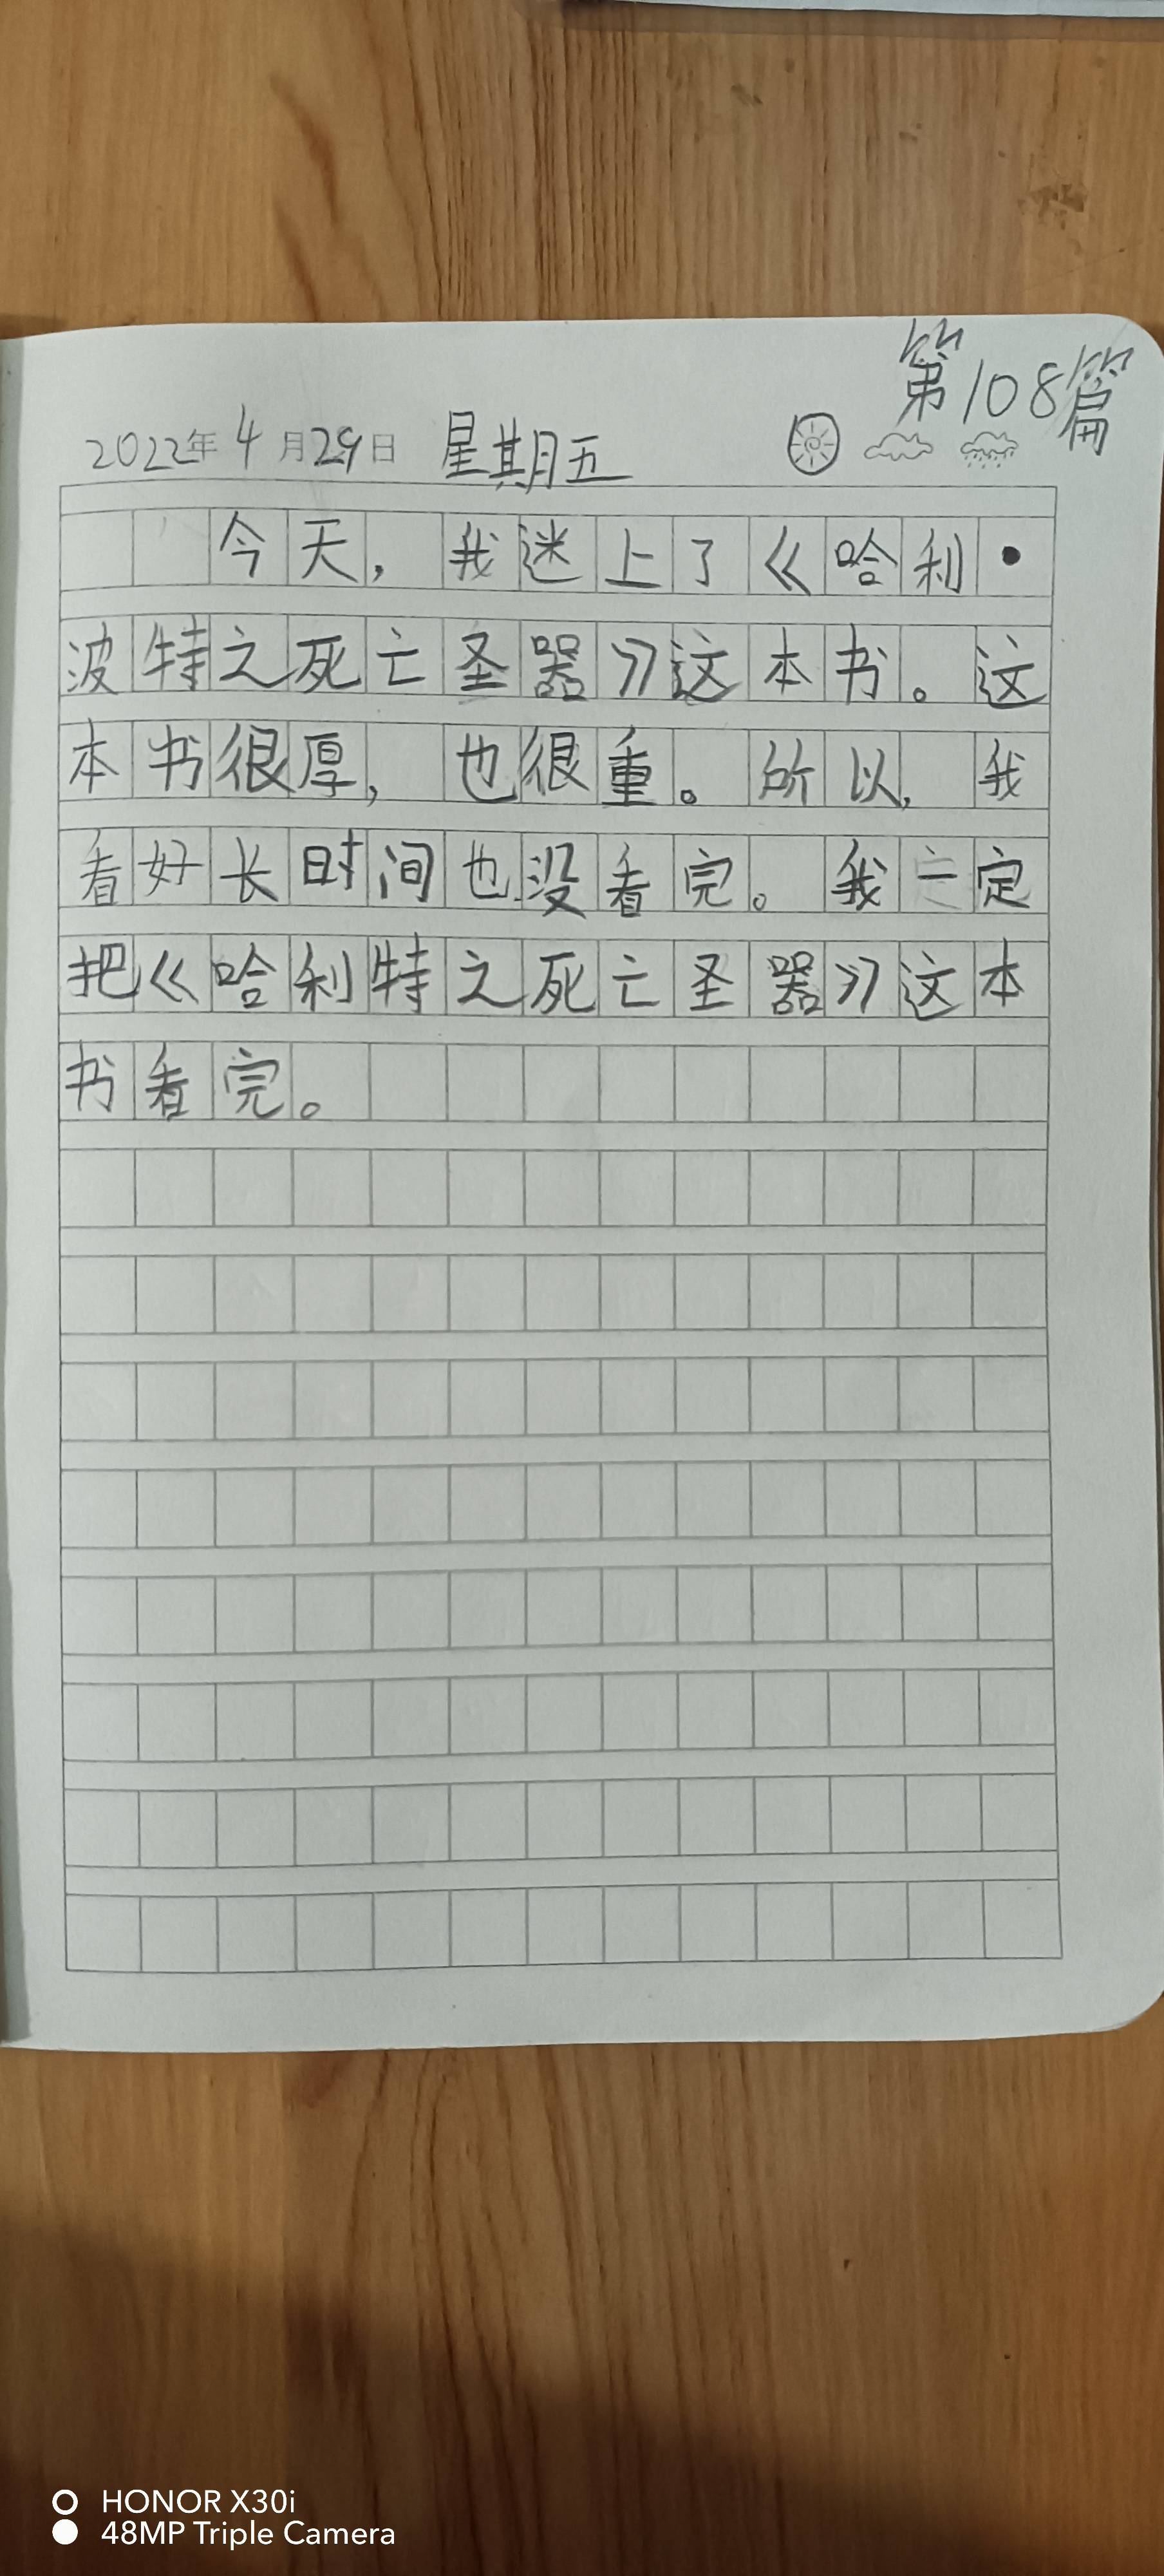 第108篇
2022年4月29日 星期五
今天，我迷上了《哈利·
波特之死亡圣器》这本书。这
本书很厚，也很重。所以，我
看好长时间也没看完。我一定
把《哈利特之死亡圣器》这本
书看完。
HONOR X30i
48MP Triple Camera